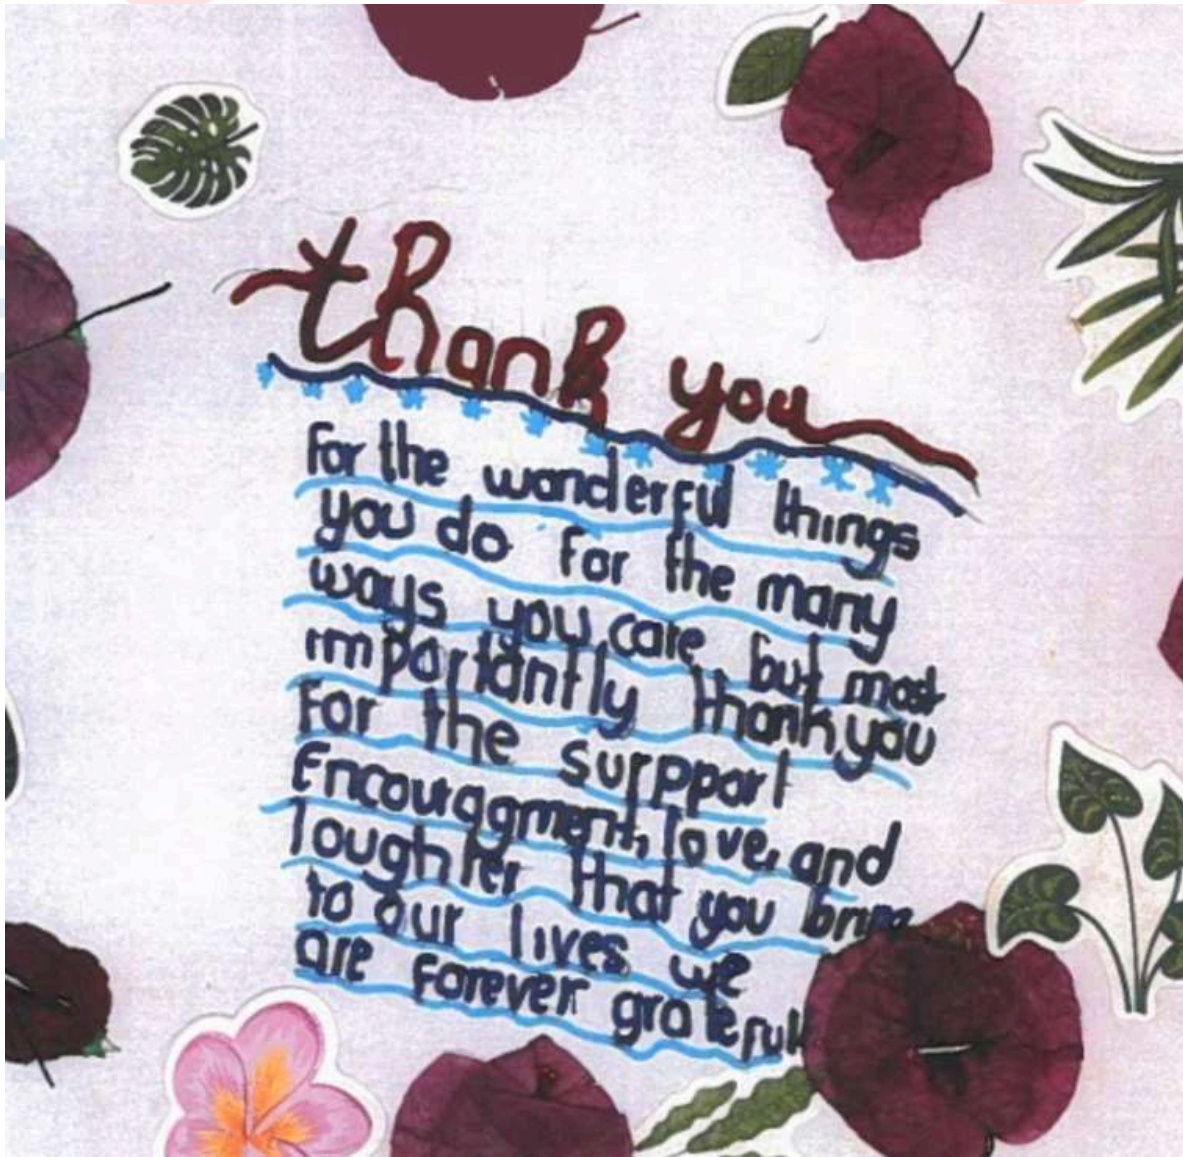 thank you
For the wonderful things
you do for the many
ways you care but most
importantly thank you
For the surpport
Encouragment, love, and
loughter that you bring
to our lives we
are forever grateful